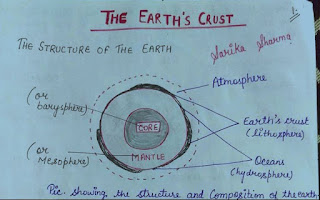 THE EARTH'S CRUST
1.
THE STRUCTURE OF THE EARTH
Sarika Sharma
Atmosphere
(or
barysphere)
CORE
Earth's crust
(lithosphere)
(or
Mesophere)
MANTLE
Oceans
(hydrosphere)
Pic. showing the structure and composition of the earth